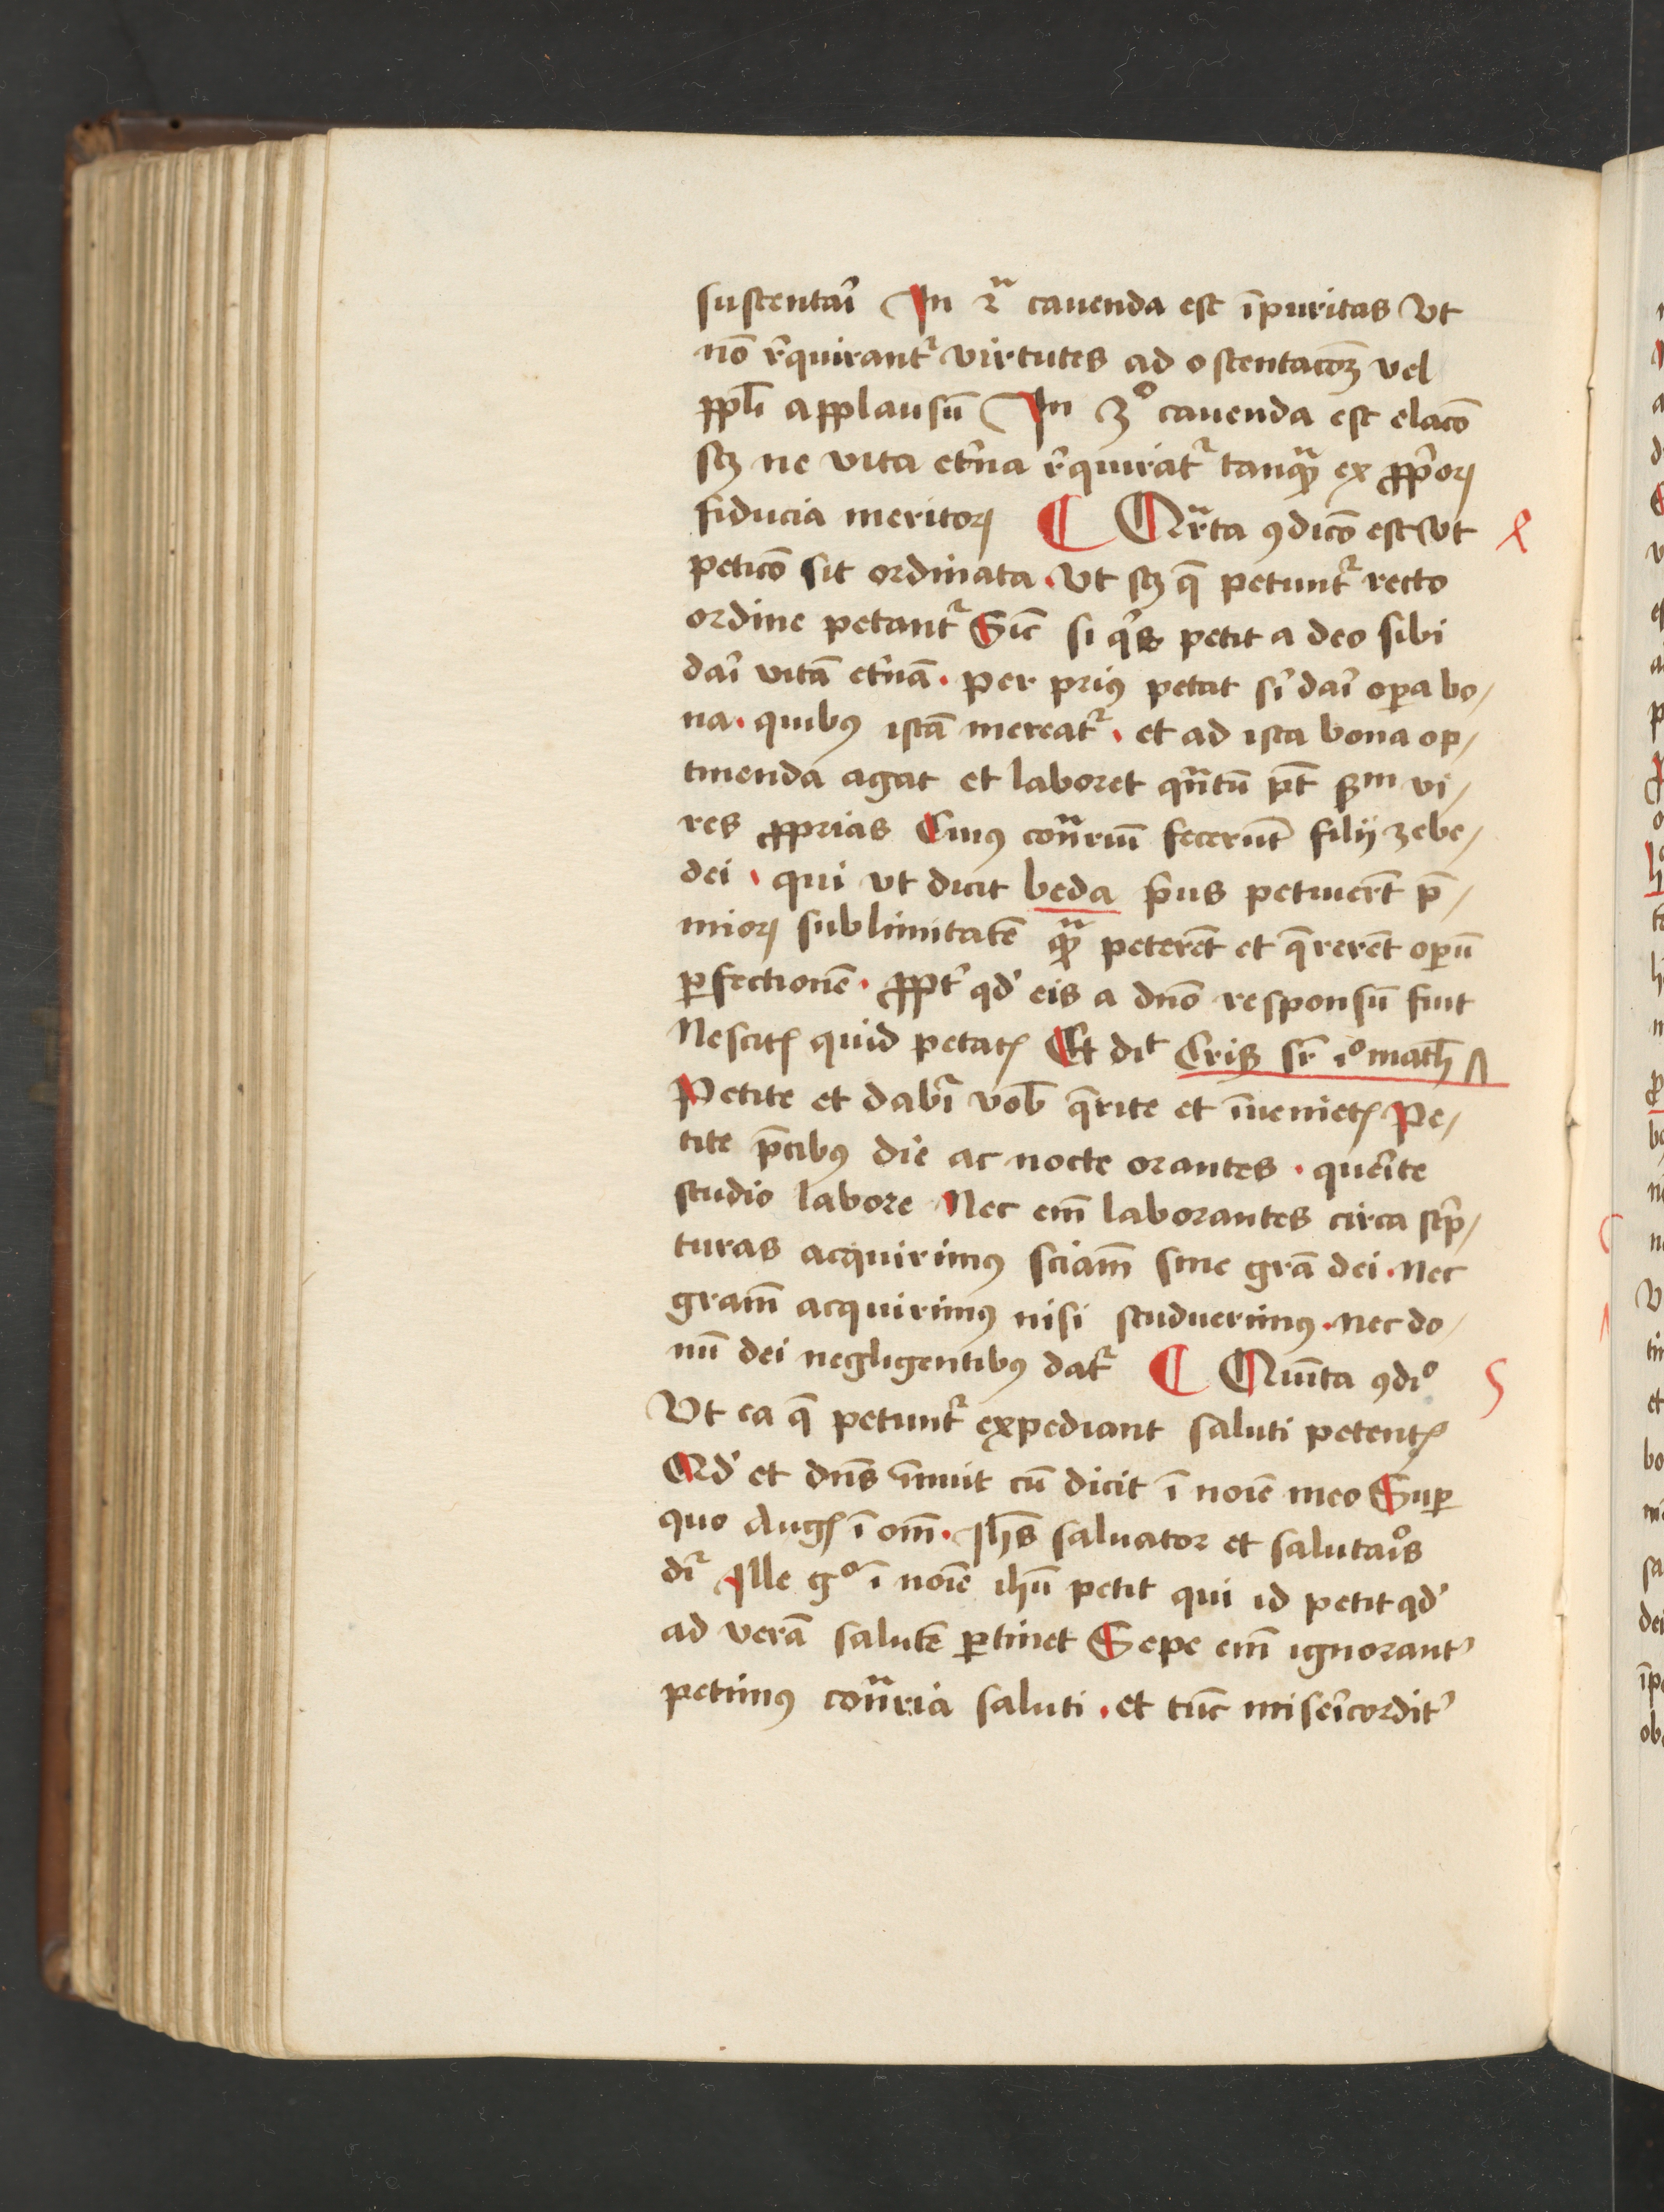 sustentaı̉ In 2ᵃ cauenda est īpuritas Vt
nō rͤquirantᷣ virtutes ad ostentacōꝫ vel
ppl̄i applausū In 3° cauenda est elacō
scꝫ ne vita etͤna rͤquiratᷣ tanꝙᷓ ex ꝓpͥoꝝ
fiducia meritoꝝ ¶ Qrᷓta ꝯdicō est vt
peticō sit ordinata · Vt scꝫ q̄ petuntᷣ recto
ordine petantᷣ Sic̄ si qͥs petit a deo sibi
daı̉ vitā etͤnā · per priꝰ petat sͥ daı̉ oꝑa bo/
na · quibꝰ istā mereatᷣ · et ad ista bona op/
tinenda agat et laboret qn̄tū pt̄ ẜm vi/
res ꝓprias Cuiꝰ cōᷓriū fecerūt filij zebe/
dei · qui vt dicit beda pͥus petiuer̄t p̄/
mioꝝ sublimitatē ꝙᷓ peterēt et q̄rerēt oꝑū
ꝑfectionē · ꝓptͤ qd̛ eis a dn̄o responsū fuit
Nescitꝭ quid petatꝭ Et dīt Crisꝰ sr̄ i° math̄
Petite et dabıᷣ vob̄ q̄rite et īuenietꝭ Pe/
tite p̄cibꝰ die ac nocte orantes · querͥte
studio labore Nec em̄ laborantes circa scͥp/
turas acquirimꝰ sciam̄ sine gr̄a dei · Nec
gram̄ acquirimꝰ nisi studuerimꝰ · nec do/
nū dei negligentibꝰ datᷣ ¶ Quı̄ta ꝯdı°
Vt ea q̄ petuntᷣ expediant saluti petentꝭ
Qd̛ et dn̄s īnuit cū dicit ī noı̄e meo Suꝑ
quo Augꝭ ī om̄ · Ih̄s saluator et salutaı̉s
dıᷣ Ille g° ī noı̄e ih̄u petit qui id petit qd̛
ad verā salutē ꝑtinet Sepe em̄ ignorantͤ
petimꝰ cōᷓria saluti · et tūc miserͥcorditͤ